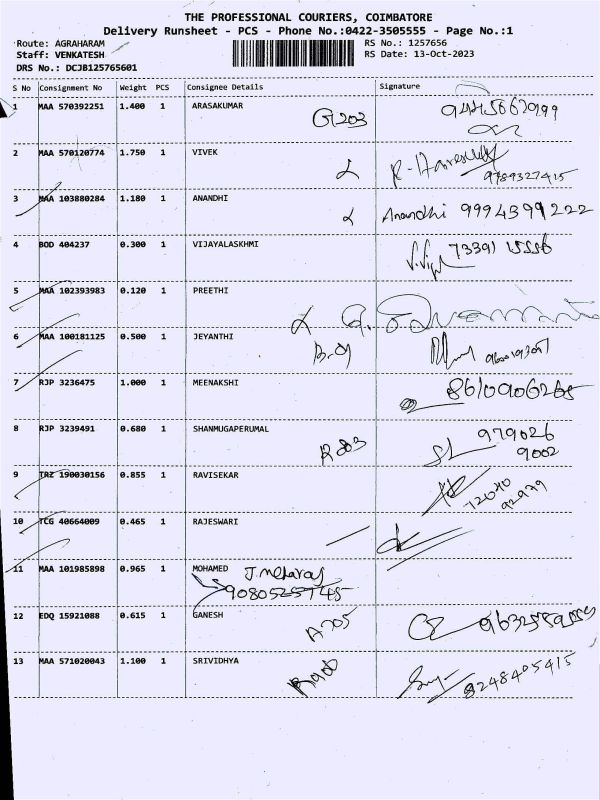 THE PROFESSIONAL COURIERS, COIMBATORE
Delivery Runsheet - PCS - Phone No.:0422-3505555 - Page No.:1
Route: AGRAHARAM RS No.: 1257656
Staff: VENKATESH RS Date: 13-Oct-2023
DRS No.: DCJB125765601
S No Consignment No Weight PCS Consignee Details Signature
1 MAA 570392251 1.400 1 ARASAKUMAR
G203
2 MAA 570120774 1.750 1 VIVEK
9789327415
3 MAA 103880284 1.180 1 ANANDHI
Anandhi 9994399222
4 BOD 404237 0.300 1 VIJAYALASKHMI
5 MAA 102393983 0.120 1 PREETHI
6 MAA 100181125 0.500 1 JEYANTHI
7 RJP 3236475 1.000 1 MEENAKSHI
8610906268
8 RJP 3239491 0.680 1 SHANMUGAPERUMAL
979026
R303 9002
9 TRZ 190030156 0.855 1 RAVISEKAR
10 TCG 40664009 0.465 1 RAJESWARI
11 MAA 101985898 0.965 1 MOHAMED
12 EDQ 15921088 0.615 1 GANESH
A705
13 MAA 571020043 1.100 1 SRIVIDHYA
8248405415